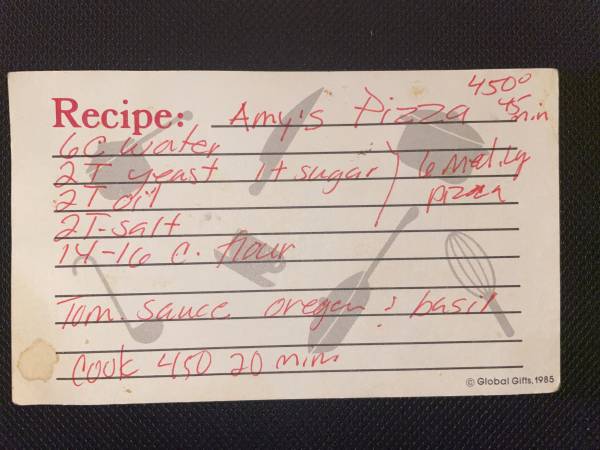 Recipe: Amy's Pizza 450°
45 min
6 C water
2 T yeast 1 t sugar
2 T oil
6 Med. Lg pizza
2 T salt
14-16 C. flour
Tom. sauce oregan & basil
Cook 450 20 min
© Global Gifts, 1985